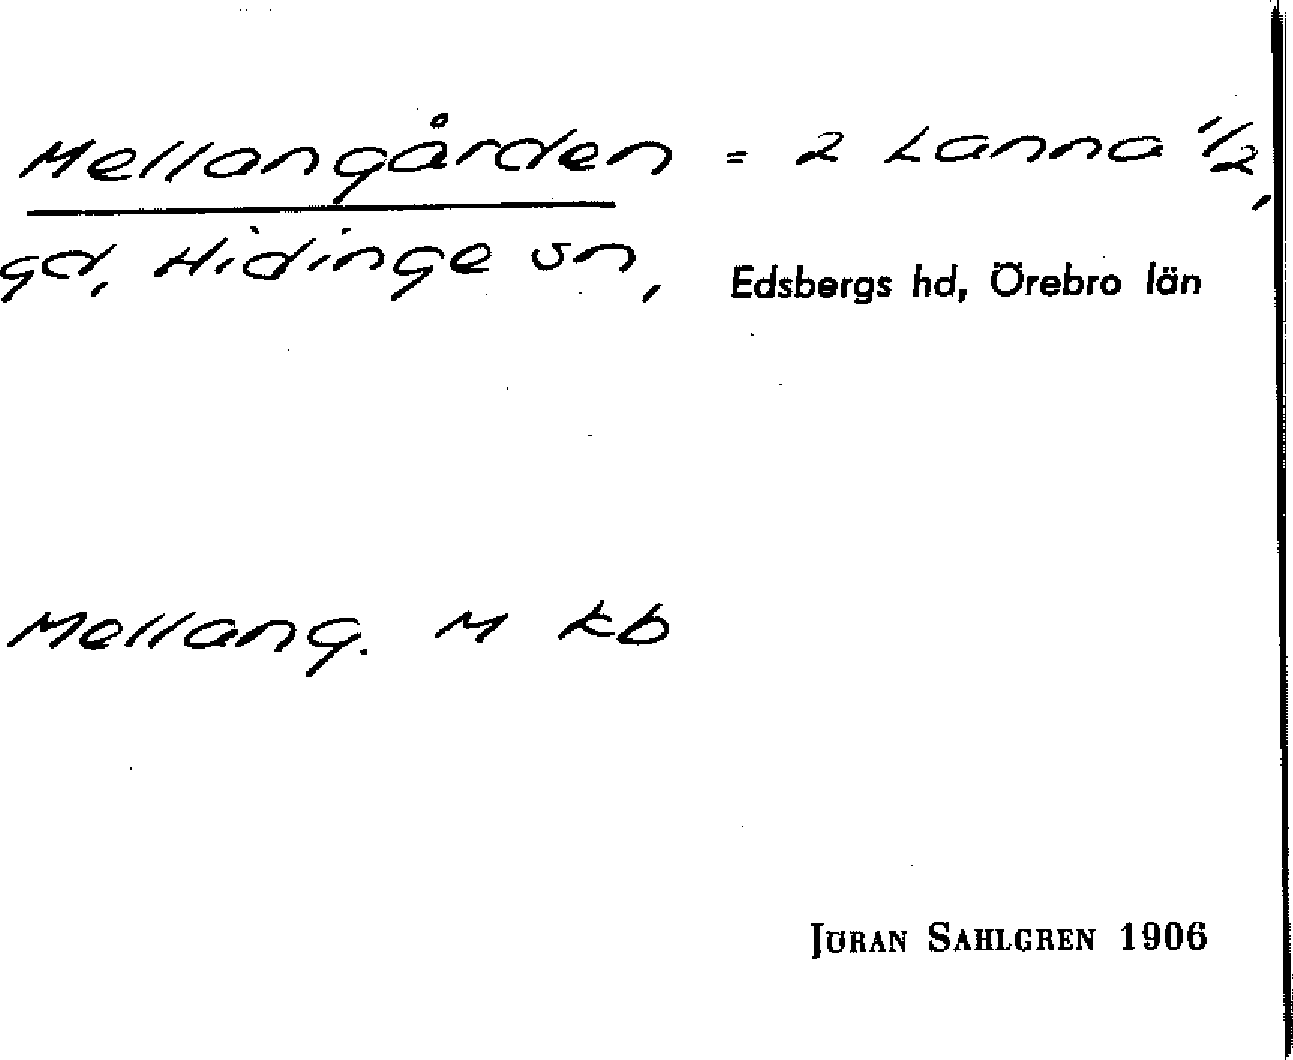 Mellangården = 2 Lanna 1/2,
gd, Hidinge sn, Edsbergs hd, Örebro län
Mellang. M kb
Jöran Sahlgren 1906